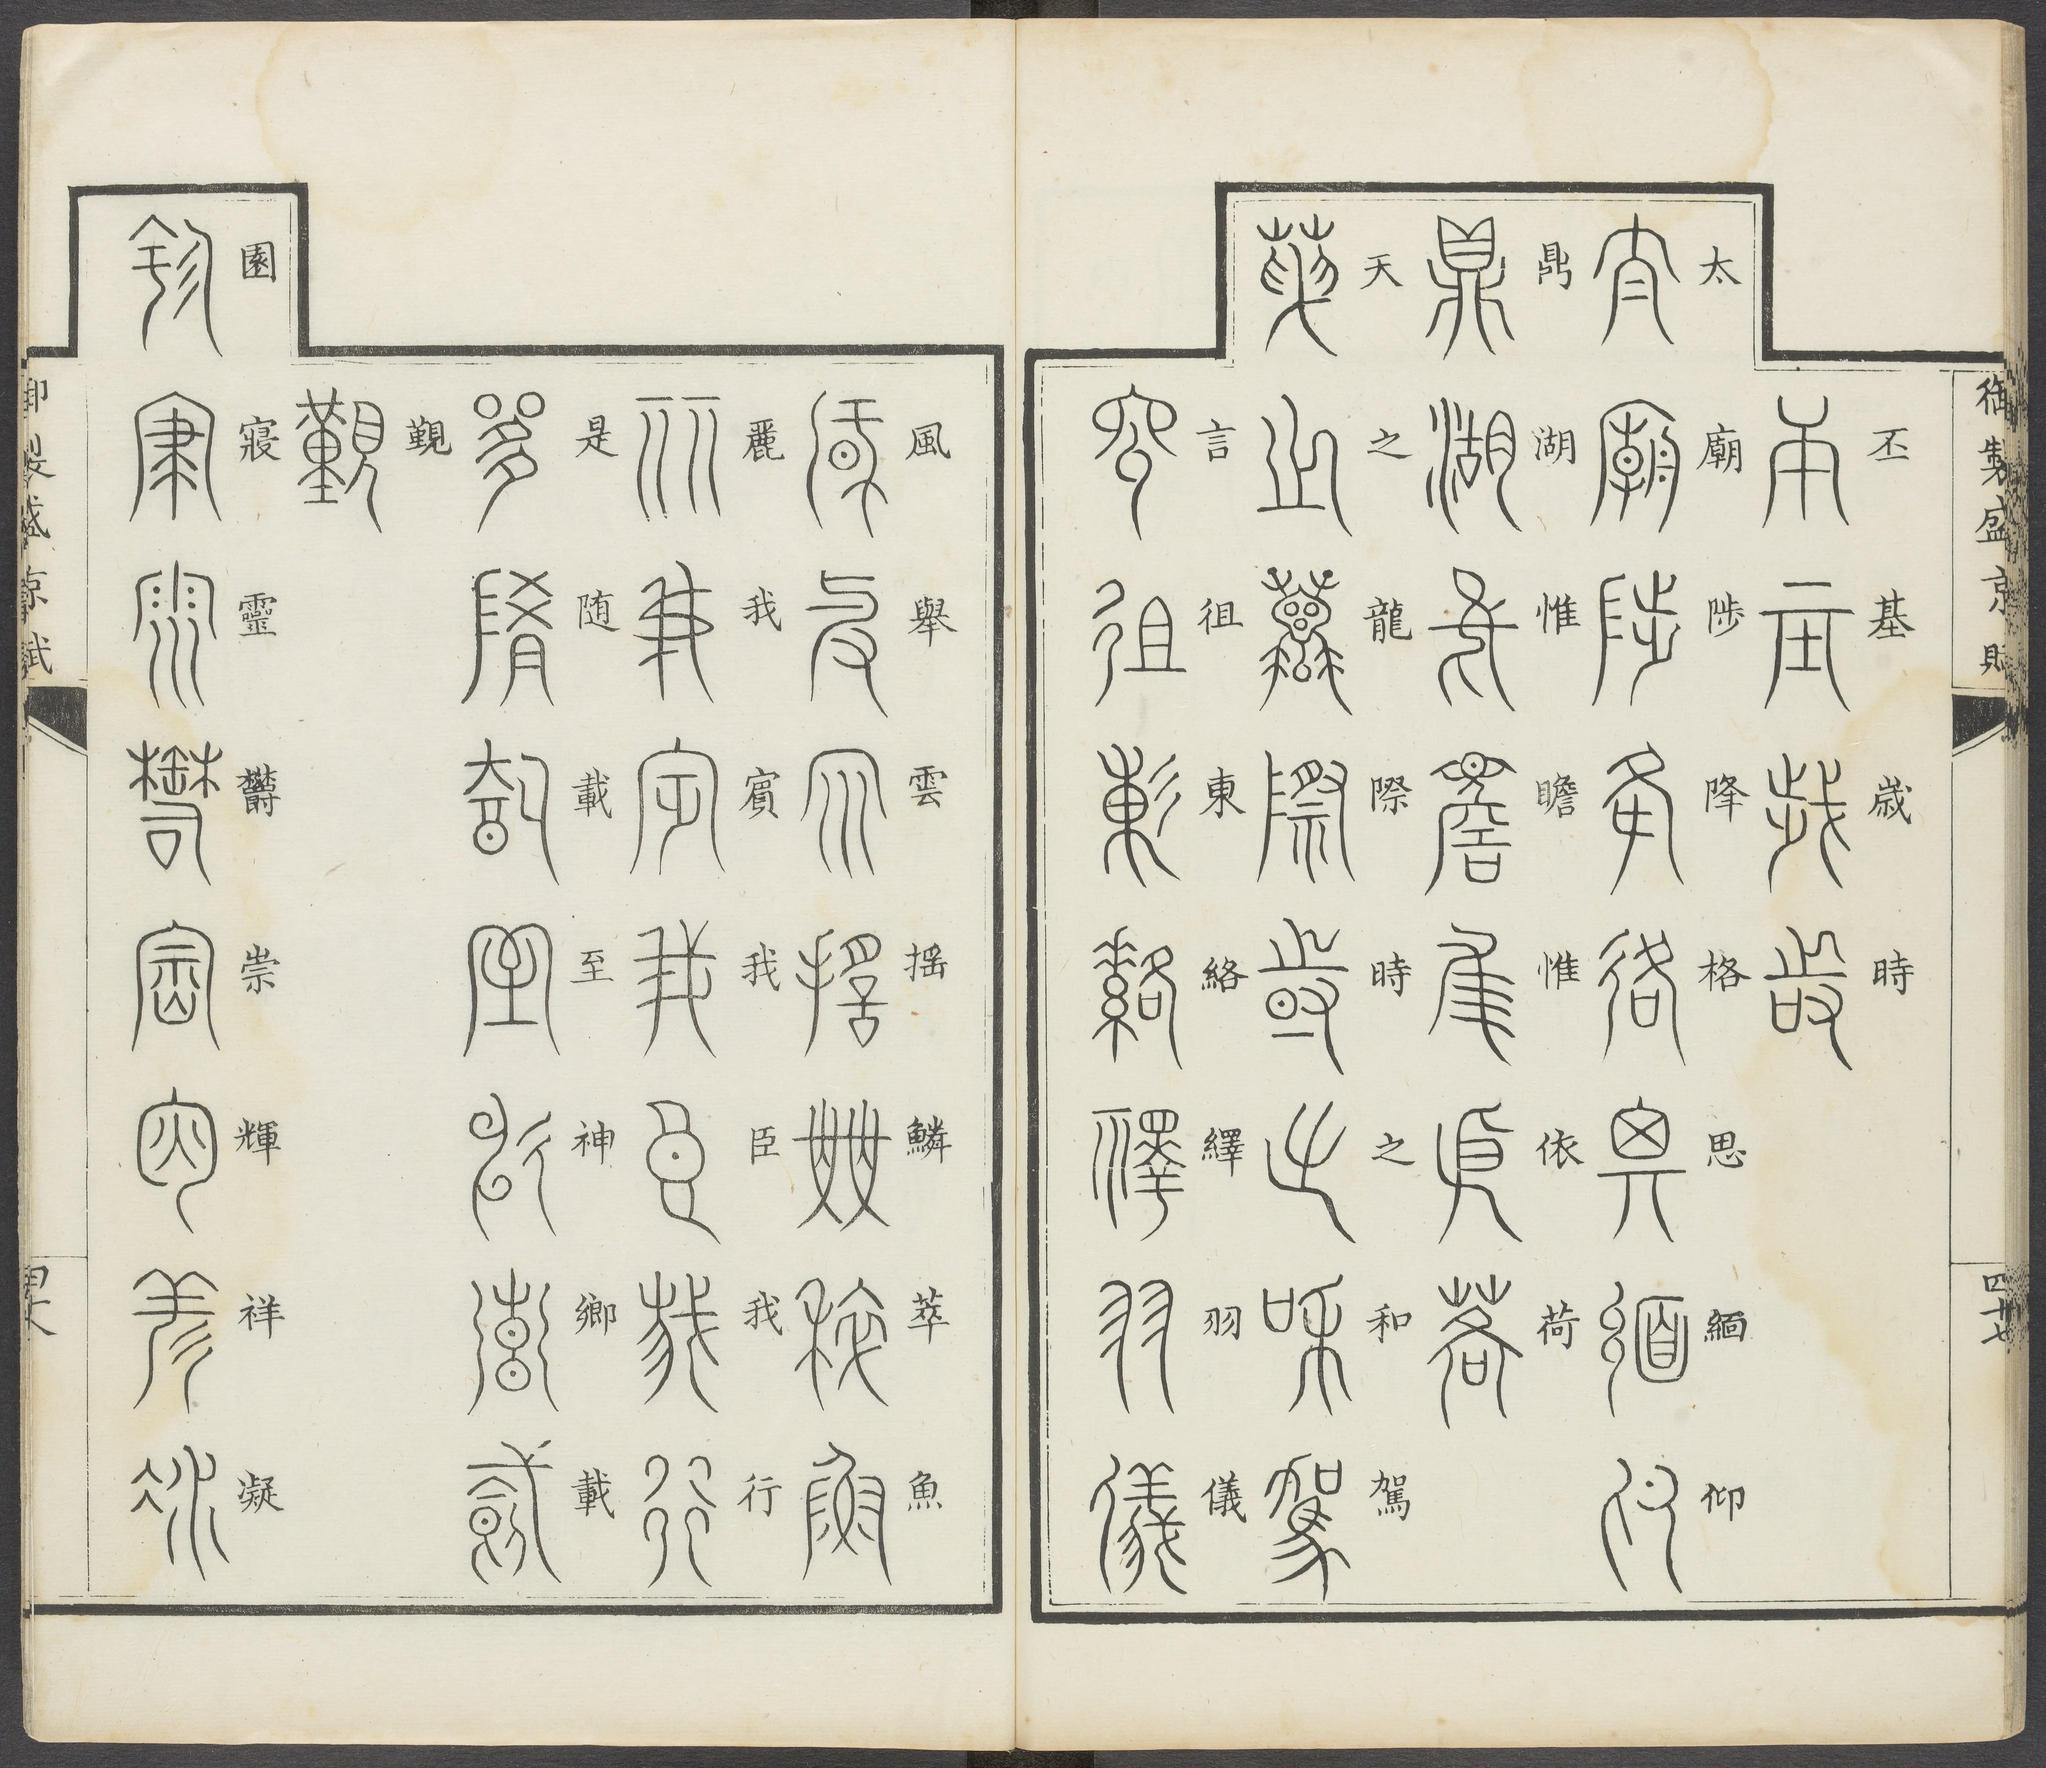 御製盛京賦
四十七
丕基歲時
太廟陟降格思緬仰
鼎湖惟瞻惟依荷
天之龍際時之和駕
言徂東絡繹羽儀
風舉雲搖鱗萃魚
麗我賓我臣我行
是隨載至神鄉載
覲
園寢靈欝崇輝祥凝
御製盛京賦